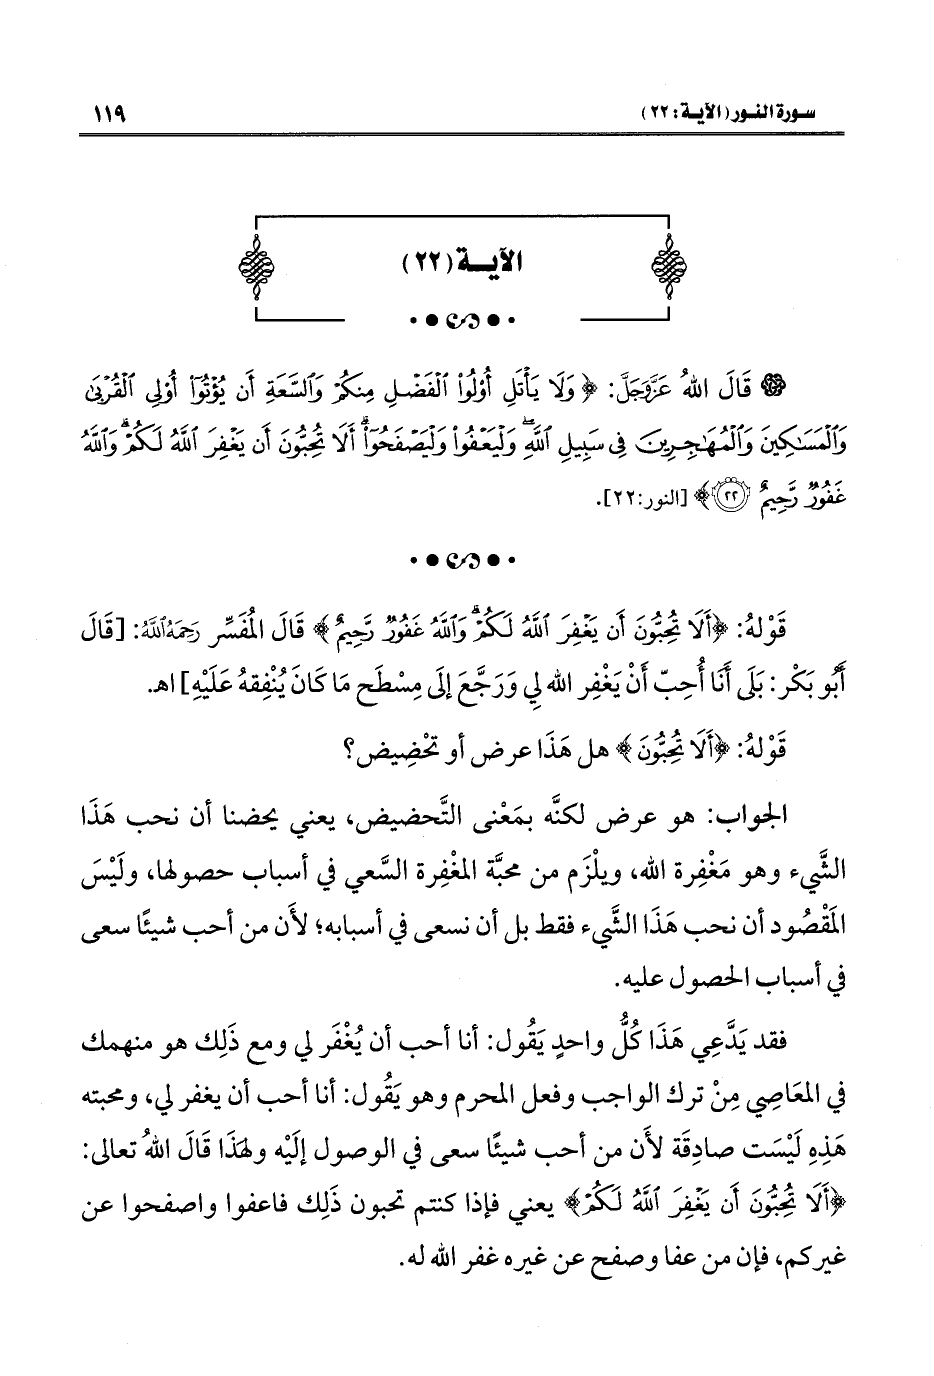 سورة النور (الآية: ٢٢) ١١٩
الآية (٢٢)
قَالَ اللهُ عَزَّوَجَلَّ: ﴿وَلَا يَأْتَلِ أُوْلُواْ الْفَضْلِ مِنكُمْ وَالسَّعَةِ أَن يُؤْتُوٓاْ أُوْلِي الْقُرْبَىٰ
وَالْمَسَٰكِينَ وَالْمُهَٰجِرِينَ فِي سَبِيلِ اللَّهِۖ وَلْيَعْفُواْ وَلْيَصْفَحُوٓاْۗ أَلَا تُحِبُّونَ أَن يَغْفِرَ اللَّهُ لَكُمْۗ وَاللَّهُ
غَفُورٌ رَّحِيمٌ ٢٢﴾ [النور:٢٢].
قَوْلهُ: ﴿أَلَا تُحِبُّونَ أَن يَغْفِرَ اللَّهُ لَكُمْۗ وَاللَّهُ غَفُورٌ رَّحِيمٌ﴾ قَالَ المُفَسِّر رَحِمَهُ اللَّهُ: [قَالَ
أَبُو بَكْر: بَلَى أَنَا أُحِبّ أَنْ يَغْفِر الله لِي وَرَجَّعَ إِلَى مِسْطَح مَا كَانَ يُنْفِقهُ عَلَيْهِ] اهـ.
قَوْلهُ: ﴿أَلَا تُحِبُّونَ﴾ هل هَذَا عرض أو تحْضِيض؟
الجواب: هو عرض لكنَّه بمَعْنى التَّحضيض، يعني يحضنا أن نحب هَذَا
الشَّيء وهو مَغْفِرة الله، ويلْزَم من محبَّة المغْفِرة السَّعي في أسباب حصولها، ولَيْسَ
المَقْصُود أن نحب هَذَا الشَّيء فقط بل أن نسعى في أسبابه؛ لأَن من أحب شيئًا سعى
في أسباب الحصول عليه.
فقد يَدَّعِي هَذَا كُلُّ واحدٍ يَقُول: أنا أحب أن يُغْفَر لي ومع ذَلِك هو منهمك
في المعَاصِي مِنْ ترك الواجب وفعل المحرم وهو يَقُول: أنا أحب أن يغفر لي، ومحبته
هَذِهِ لَيْسَت صادِقَة لأَن من أحب شيئًا سعى في الوصول إلَيْه ولهَذَا قَالَ اللهُ تعالى:
﴿أَلَا تُحِبُّونَ أَن يَغْفِرَ اللَّهُ لَكُمْ﴾ يعني فإذا كنتم تحبون ذَلِك فاعفوا واصفحوا عن
غيركم، فإن من عفا وصفح عن غيره غفر الله له.